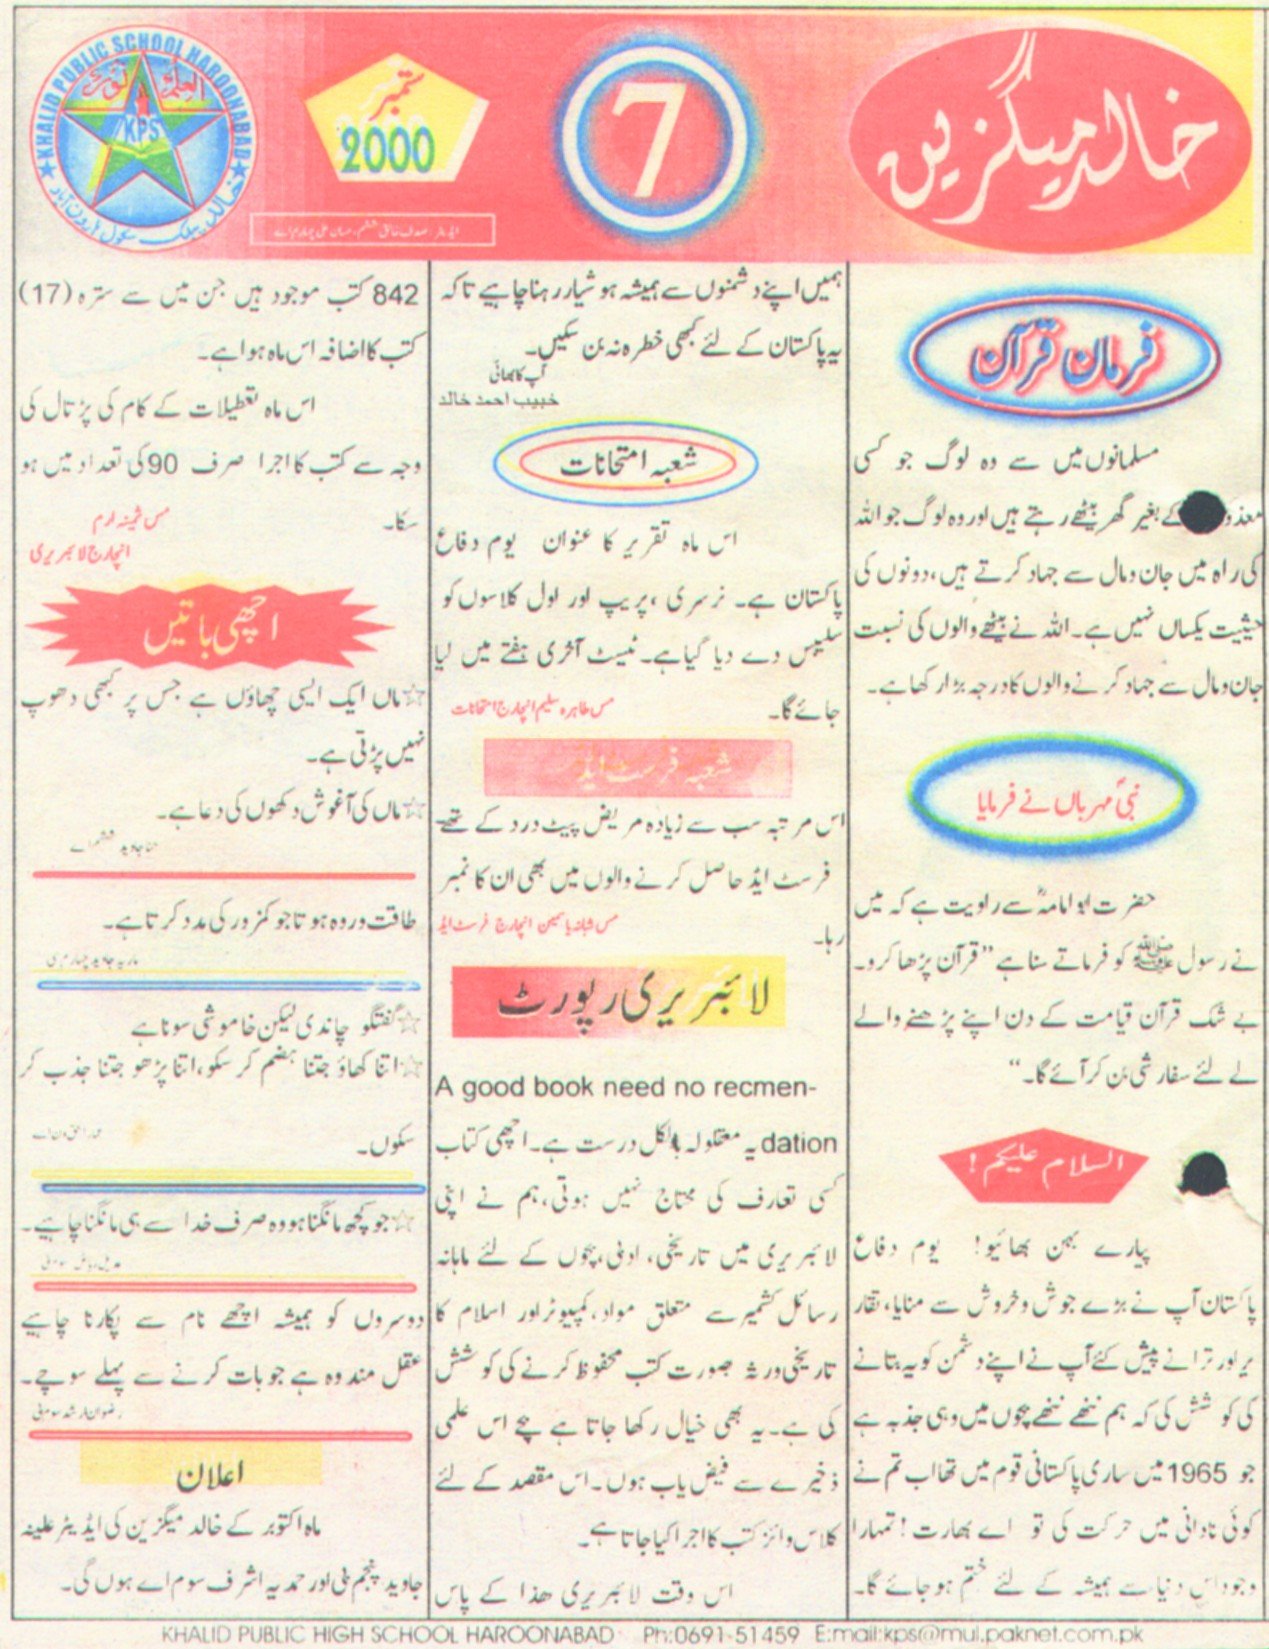 خالد میگزین
7
ستمبر
2000
KHALID PUBLIC SCHOOL HAROONABAD
العلم نور
KPS
خالد پبلک سکول ہارون آباد
فرمان قرآن
مسلمانوں میں سے وہ لوگ جو کسی
کے بغیر گھر بیٹھے رہتے ہیں اور وہ لوگ جو اللہ
کی راہ میں جان و مال سے جہاد کرتے ہیں، دونوں کی
حیثیت یکساں نہیں ہے۔ اللہ نے بیٹھے والوں کی نسبت
جان و مال سے جہاد کرنے والوں کا درجہ بڑا رکھا ہے۔
نبیؐ مہرباں نے فرمایا
حضرت ابو امامہؓ سے راویت ہے کہ میں
نے رسول ﷺ کو فرماتے سنا ہے "قرآن پڑھا کرو۔
بے شک قرآن قیامت کے دن اپنے پڑھنے والے
لے لئے سفارشی بن کر آئے گا۔"
السلام علیکم!
پیارے بہن بھائیو! یوم دفاع
پاکستان آپ نے بڑے جوش و خروش سے منایا، تقار
یر اور ترانے پیش کئے آپ نے اپنے دشمن کو یہ بتانے
کی کوشش کی کہ ہم ننھے ننھے بچوں میں وہی جذبہ ہے
جو 1965 میں ساری پاکستانی قوم میں تھا اب تم نے
کوئی نادانی میں حرکت کی تو اے بھارت! تمہارا
وجود اس دنیا سے ہمیشہ کے لئے ختم ہو جائے گا۔
ہمیں اپنے دشمنوں سے ہمیشہ ہوشیار رہنا چاہیے تاکہ
یہ پاکستان کے لئے کبھی خطرہ نہ بن سکیں۔
آپ کا بھائی
خبیب احمد خالد
شعبہ امتحانات
اس ماہ تقریر کا عنوان یوم دفاع
پاکستان ہے۔ نرسری، پریپ اور اول کلاسوں کو
سلیبس دے دیا گیا ہے۔ ٹیسٹ آخری ہفتے میں لیا
جائے گا۔ مس طاہرہ سلیم انچارج امتحانات
شعبہ فرسٹ ایڈ
اس مرتبہ سب سے زیادہ مریض پیٹ درد کے تھے
فرسٹ ایڈ حاصل کرنے والوں میں بھی ان کا نمبر
رہا۔ مس شبانہ یاسمین انچارج فرسٹ ایڈ
لائبریری رپورٹ
A good book need no recmen-
dation یہ معقولہ بالکل درست ہے۔ اچھی کتاب
کسی تعارف کی محتاج نہیں ہوتی، ہم نے اپنی
لائبریری میں تاریخی، ادبی، بچوں کے لئے ماہانہ
رسائل کشمیر سے متعلق مواد، کمپیوٹر اور اسلام کا
تاریخی ورثہ بصورت کتب محفوظ کرنے کی کوشش
کی ہے۔ یہ بھی خیال رکھا جاتا ہے بچے اس علمی
ذخیرے سے فیض یاب ہوں۔ اس مقصد کے لئے
کلاس وائز کتب کا اجرا کیا جاتا ہے۔
اس وقت لائبریری ھذا کے پاس
842 کتب موجود ہیں جن میں سے سترہ (17)
کتب کا اضافہ اس ماہ ہوا ہے۔
اس ماہ تعطیلات کے کام کی پڑتال کی
وجہ سے کتب کا اجرا صرف 90 کی تعداد میں ہو
سکا۔ مس ثمینہ ارم
انچارج لائبریری
اچھی باتیں
☆ماں ایک ایسی چھاؤں ہے جس پر کبھی دھوپ
نہیں پڑتی ہے۔
☆ماں کی آغوش دکھوں کی دعا ہے۔
طاقت ور وہ ہوتا جو کمزور کی مدد کرتا ہے۔
☆گفتگو چاندی لیکن خاموشی سونا ہے
☆اتنا کھاؤ جتنا ہضم کر سکو، اتنا پڑھو جتنا جذب کر
سکوں۔
☆جو کچھ مانگنا ہو وہ صرف خدا سے ہی مانگنا چاہیے۔
دوسروں کو ہمیشہ اچھے نام سے پکارنا چاہیے
عقل مند وہ ہے جو بات کرنے سے پہلے سوچے۔
رضوان ارشد سوم بی
اعلان
ماہ اکتوبر کے خالد میگزین کی ایڈیٹر علینہ
جاوید پنجم بی اور حمدیہ اشرف سوم اے ہوں گی۔
KHALID PUBLIC HIGH SCHOOL HAROONABAD Ph:0691-51459 E:mail:kps@mul.paknet.com.pk